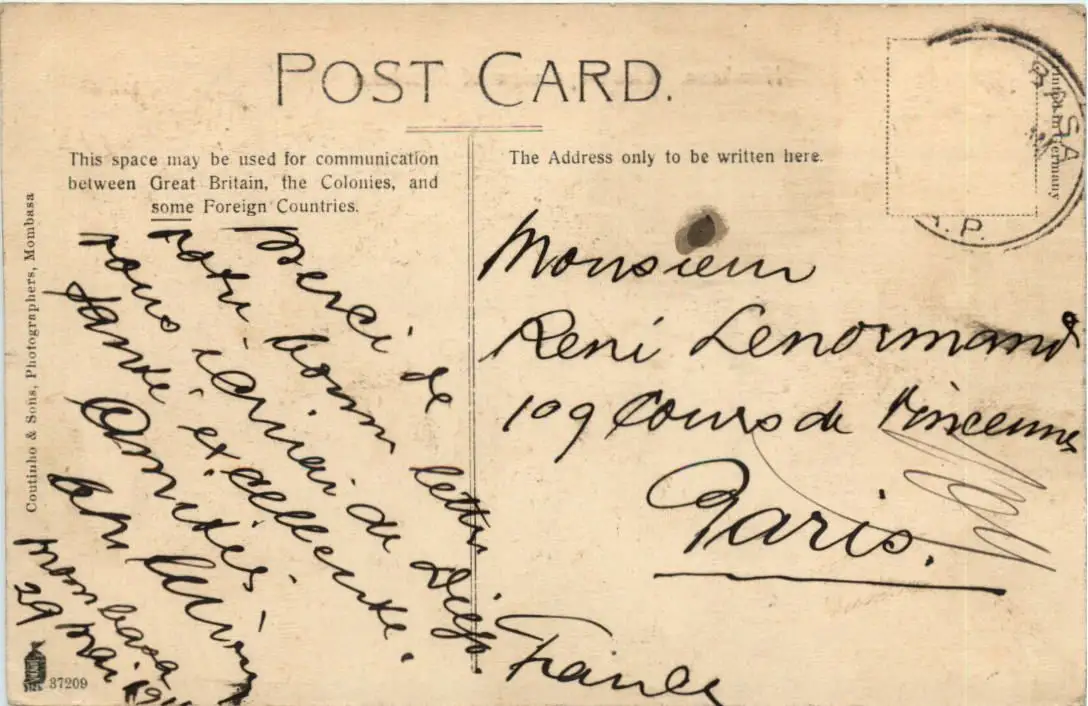 POST CARD.
This space may be used for communication
between Great Britain, the Colonies, and
some Foreign Countries.
The Address only to be written here.
Printed in Germany
Coutinho & Sons, Photographers, Mombasa
Merci de
votre bonne lettre
vous écrirai de Diego.
santé excellente.
Amitiés
Mombasa
29 Mai 19
Monsieur
René Lenormand
109 Cours de Vincennes
Paris.
France
37209